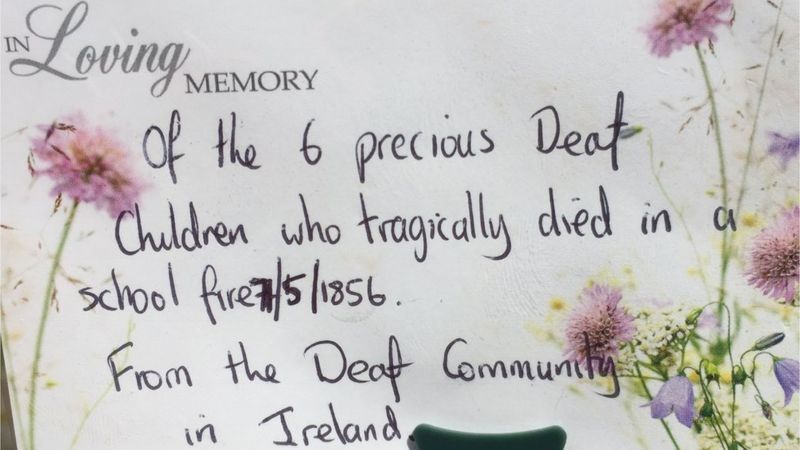 IN Loving MEMORY
Of the 6 precious Deaf
Children who tragically died in a
school fire 7/5/1856.
From the Deaf Community
in Ireland.